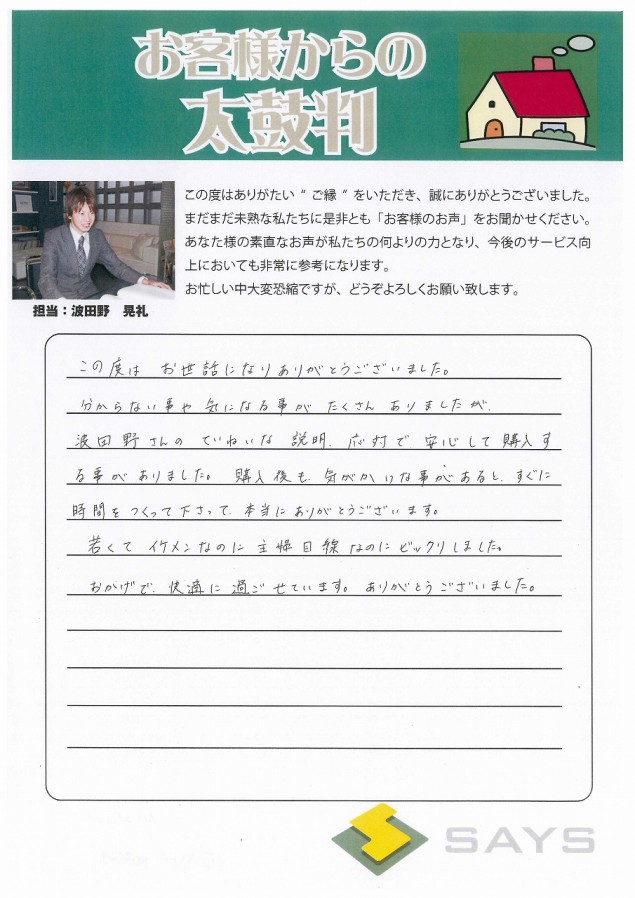 お客様からの
太鼓判
この度はありがたい“ご縁”をいただき、誠にありがとうございました。
まだまだ未熟な私たちに是非とも「お客様のお声」をお聞かせください。
あなた様の素直なお声が私たちの何よりの力となり、今後のサービス向
上においても非常に参考になります。
お忙しい中大変恐縮ですが、どうぞよろしくお願い致します。
担当：波田野　晃礼
この度は お世話になりありがとうございました。
分からない事や 気になる事が たくさん ありましたが、
波田野さんの ていねいな 説明、応対で、安心して購入す
る事がありました。 購入後も、気がかりな事があると、すぐに
時間をつくって下さって、本当にありがとうございます。
若くて イケメンなのに 主婦目線 なのに ビックリしました。
おかげで、快適に 過ごせています。 ありがとうございました。
SAYS